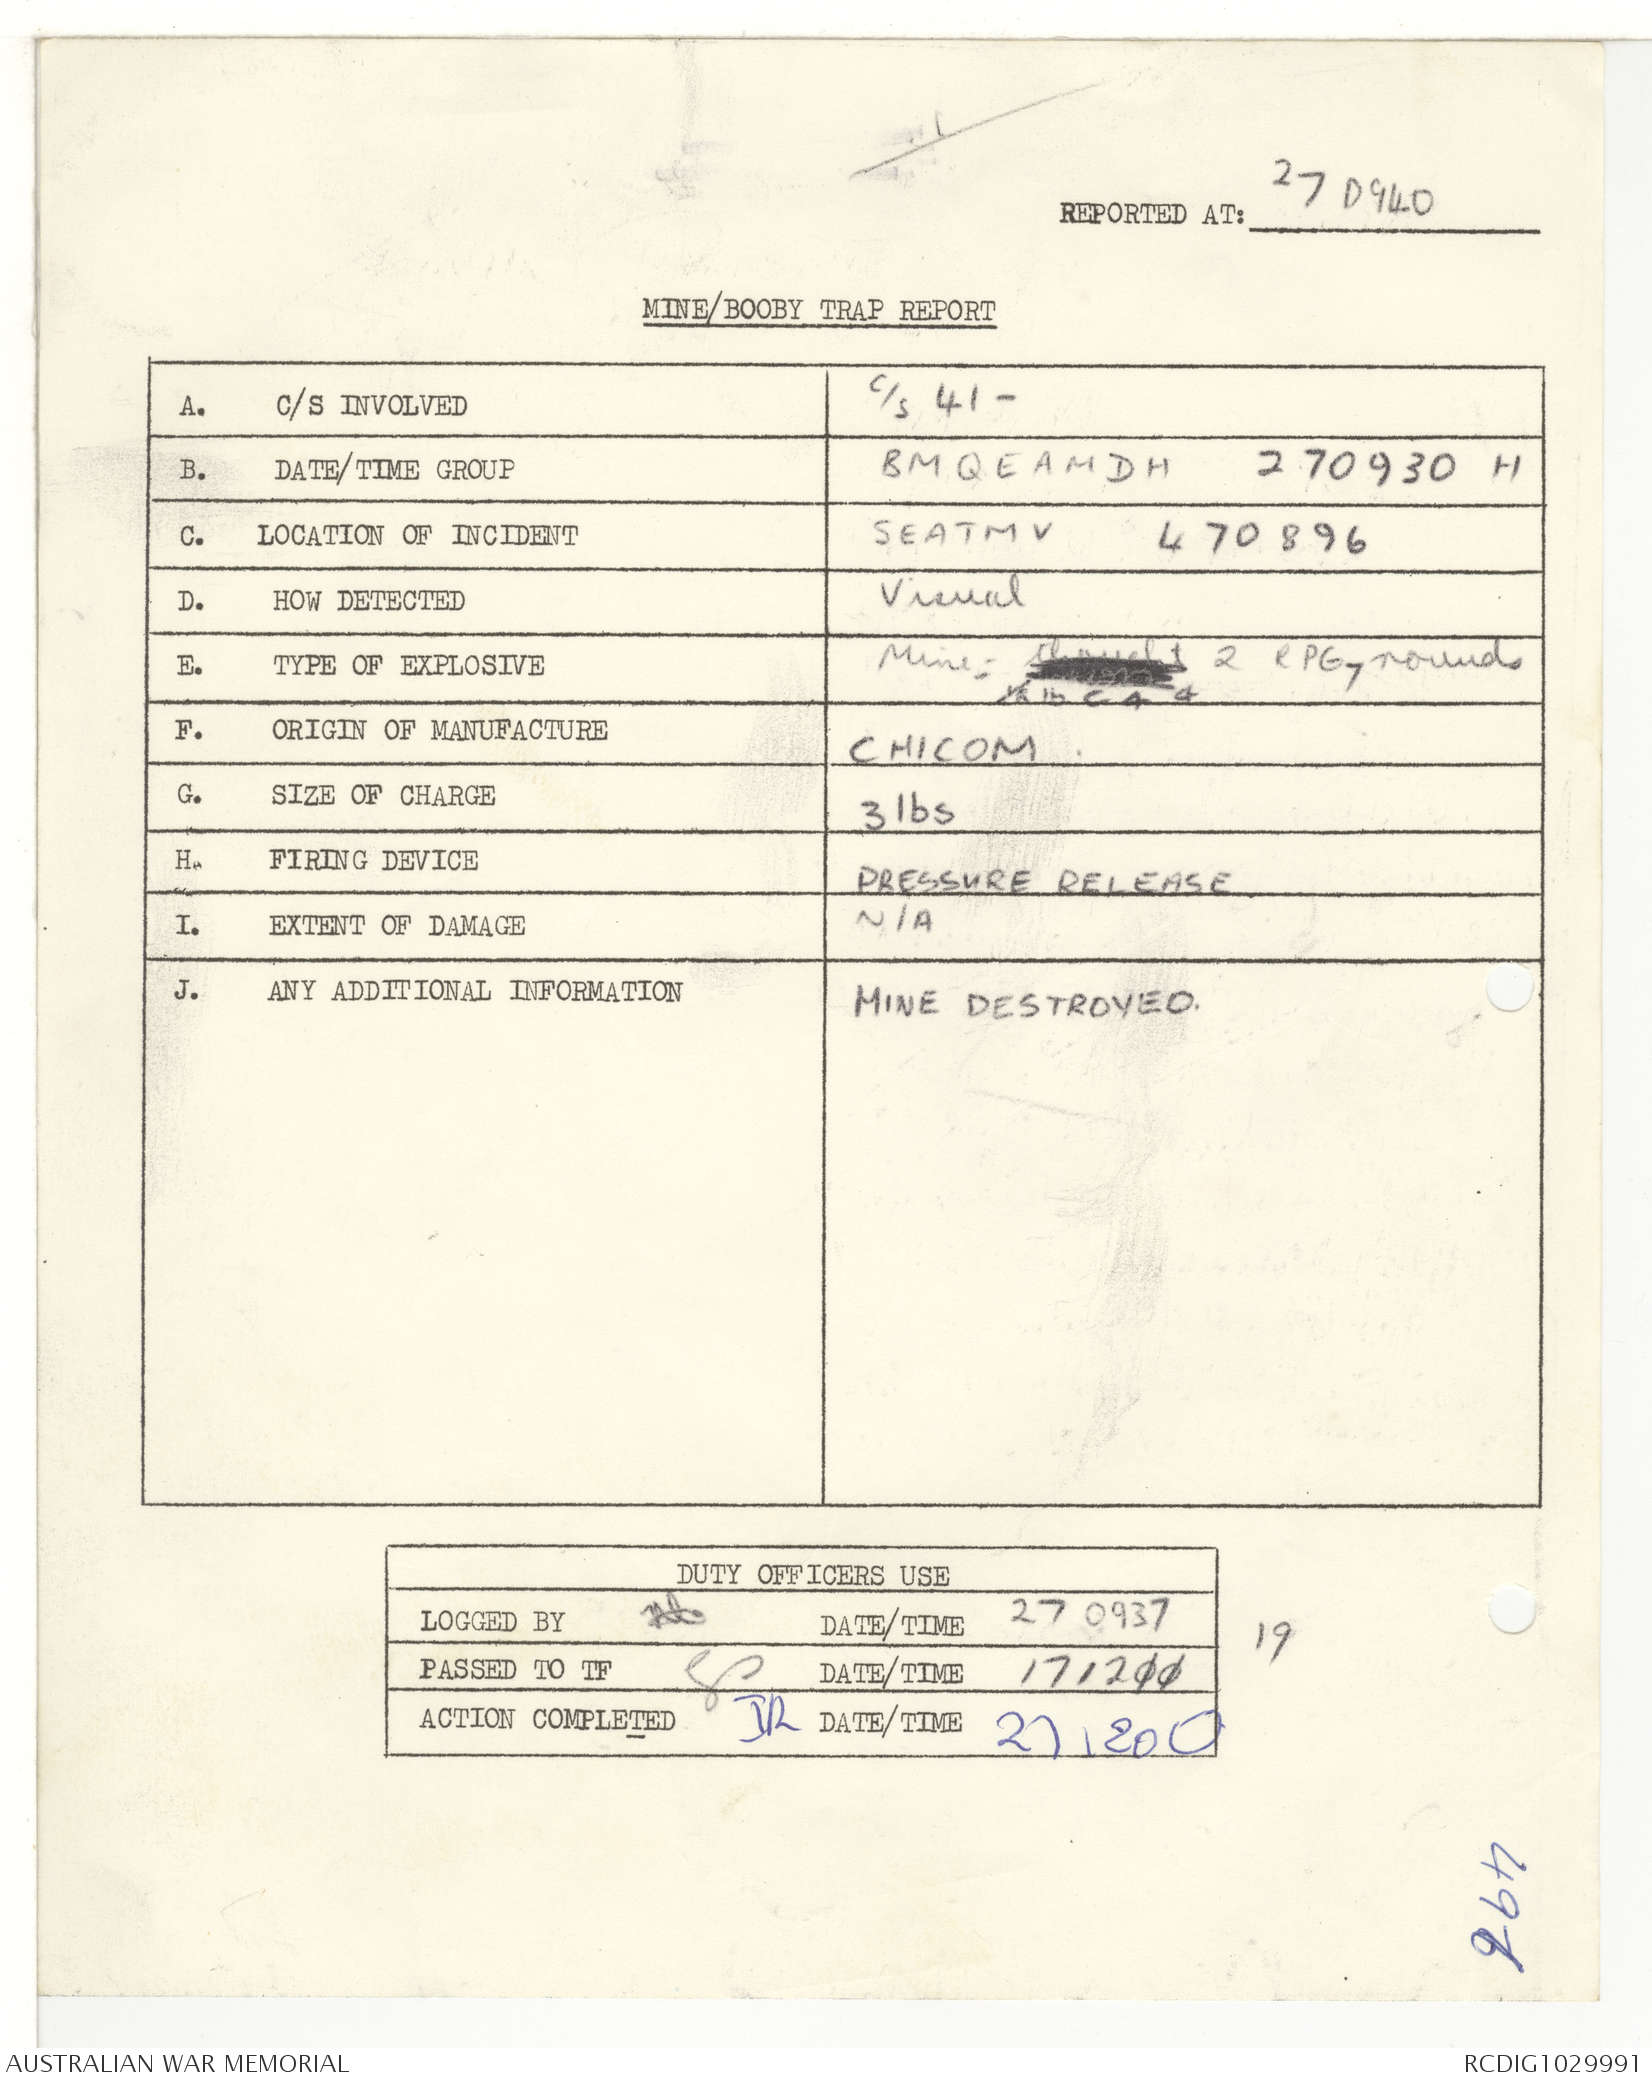 REPORTED AT: 27 0940
MINE/BOOBY TRAP REPORT
A. C/S INVOLVED C/S 41-
B. DATE/TIME GROUP BMQEAMDH 270930 H
C. LOCATION OF INCIDENT SEATMV 470896
D. HOW DETECTED Visual
E. TYPE OF EXPLOSIVE Mine - 2 RPG7 rounds
lb C 4
F. ORIGIN OF MANUFACTURE CHICOM.
G. SIZE OF CHARGE 3 lbs
H. FIRING DEVICE PRESSURE RELEASE
I. EXTENT OF DAMAGE N/A
J. ANY ADDITIONAL INFORMATION MINE DESTROYED.
DUTY OFFICERS USE
LOGGED BY DATE/TIME 27 0937
19
PASSED TO TF DATE/TIME 171200
ACTION COMPLETED JR DATE/TIME 271200
AUSTRALIAN WAR MEMORIAL
RCDIG1029991